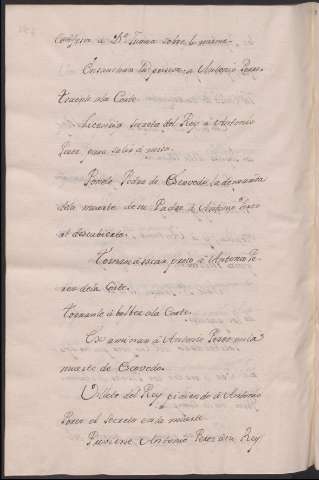 Confesion a Dª Juana sobre lo mismo.
Ensanchan la prision a Antonio Perez.
Traenle ala Corte.
Licencia secreta del Rey a Antonio
Perez para salir a misa.
Ponele Pedro de Escovedo la demanda
dela muerte de su Padre a Antonio Perez
al descubierto.
Tornan a sacar preso a Antonio Pe-
rez dela Corte.
Tornanle a bolber ala Corte.
Examinan a Antonio Perez en la
muerte de Escovedo.
Villete del Rey pidiendo a Antonio
Perez el secreto en la muerte
Previene Antonio Perez al Rey